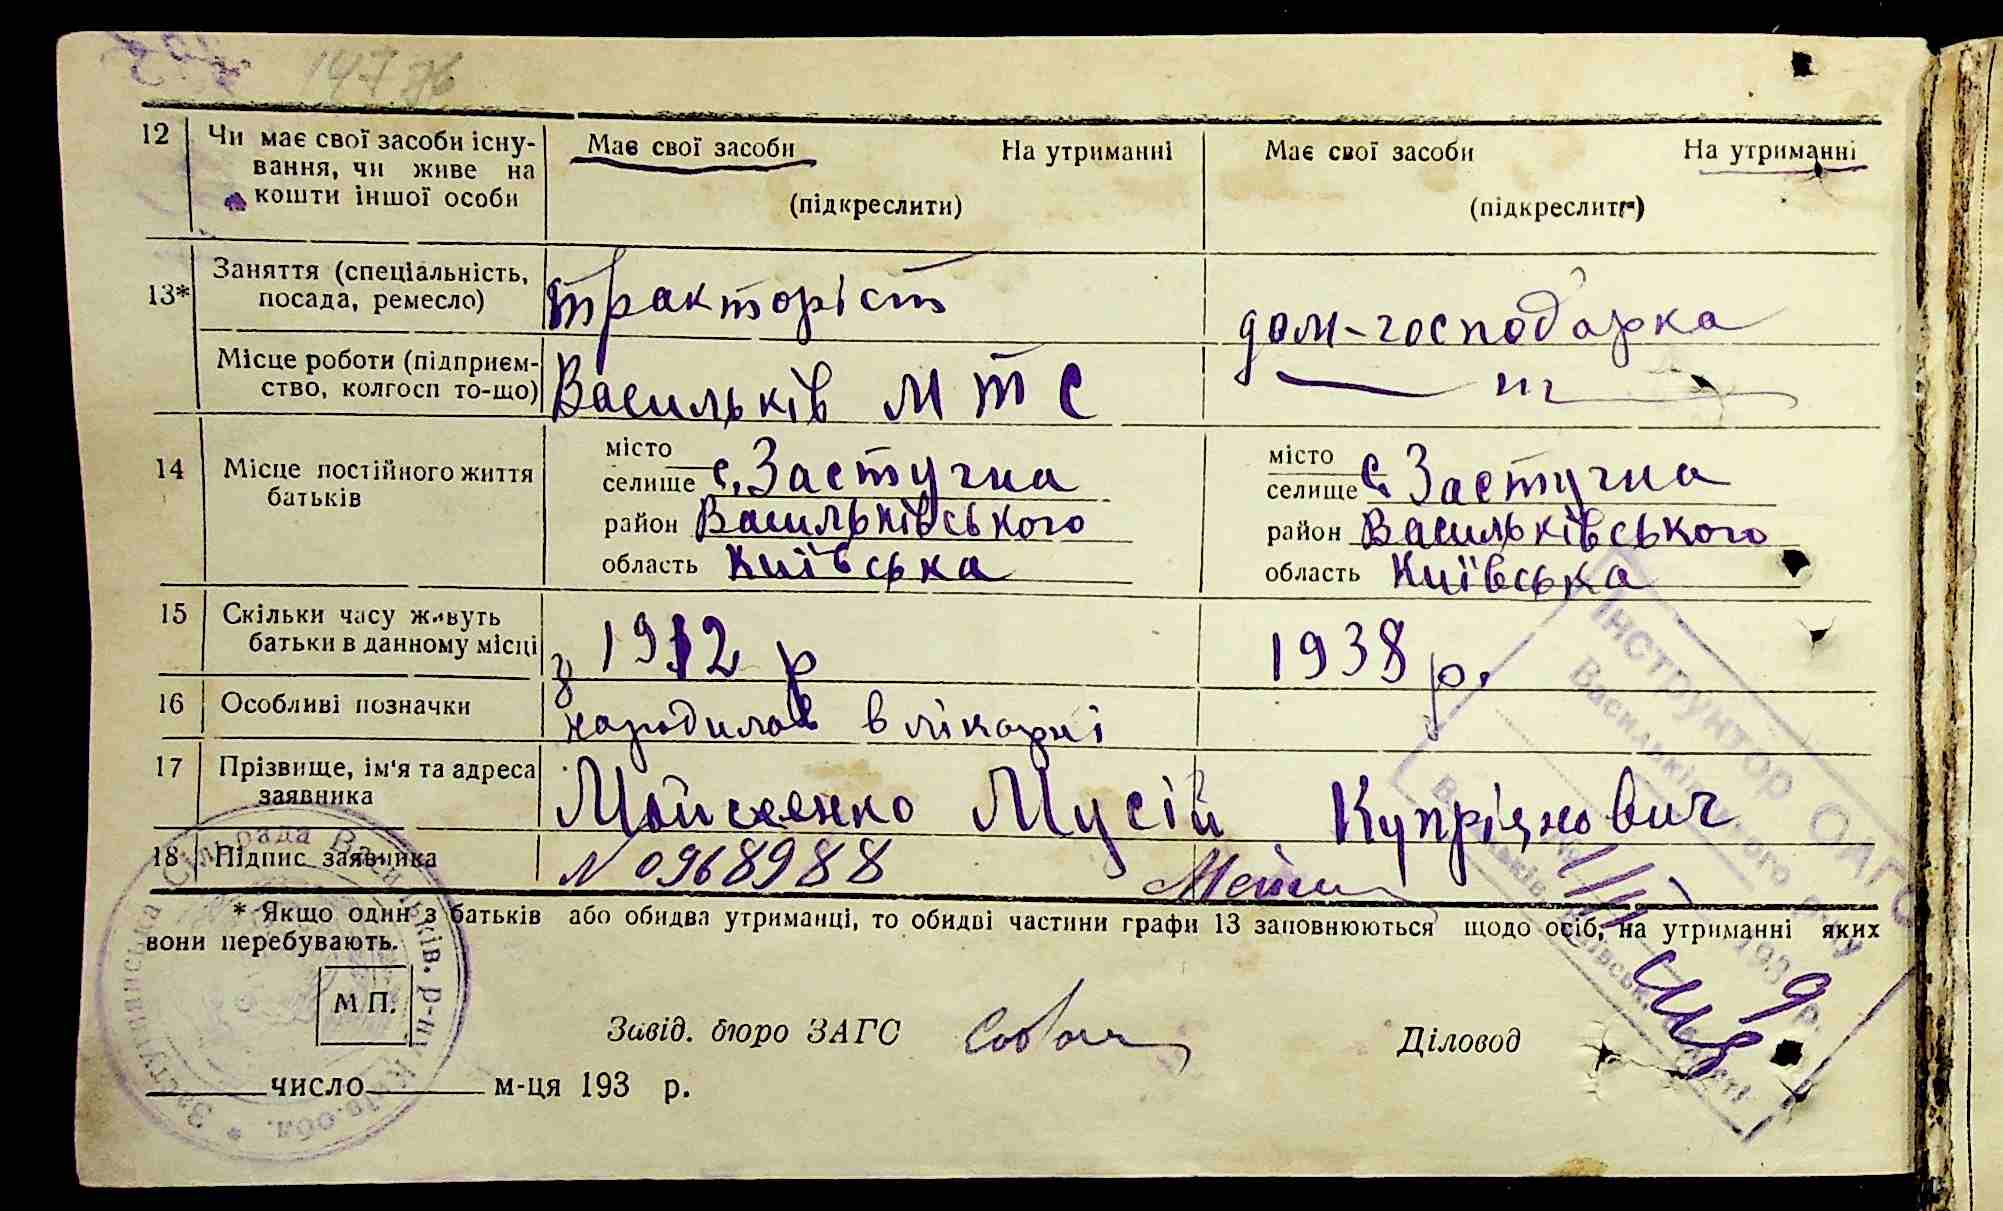 12 Чи має свої засоби існу-
вання, чи живе на
кошти іншої особи
Має свої засоби На утриманні
(підкреслити)
Має свої засоби На утриманні
(підкреслити)
13* Заняття (спеціальність,
посада, ремесло)
тракторіст
дом-господарка
Місце роботи (підприєм-
ство, колгосп то-що)
Васильків МТС
14 Місце постійного життя
батьків
місто
селище с. Застугна
район Васильківського
область Київська
місто
селище с. Застугна
район Васильківського
область Київська
15 Скільки часу живуть
батьки в данному місці
з 1912 р
1938 р.
16 Особливі позначки
народилась в лікарні
17 Прізвище, ім'я та адреса
заявника
Мойсеенко Мусій Купріянович
18 Підпис заявника
N 0968988
* Якщо один з батьків або обидва утриманці, то обидві частини графи 13 заповнюються щодо осіб, на утриманні яких
вони перебувають.
М П.
Завід. бюро ЗАГС
Діловод
число м-ця 193 р.
Інструктор ОАГС
Васильківського р-ну